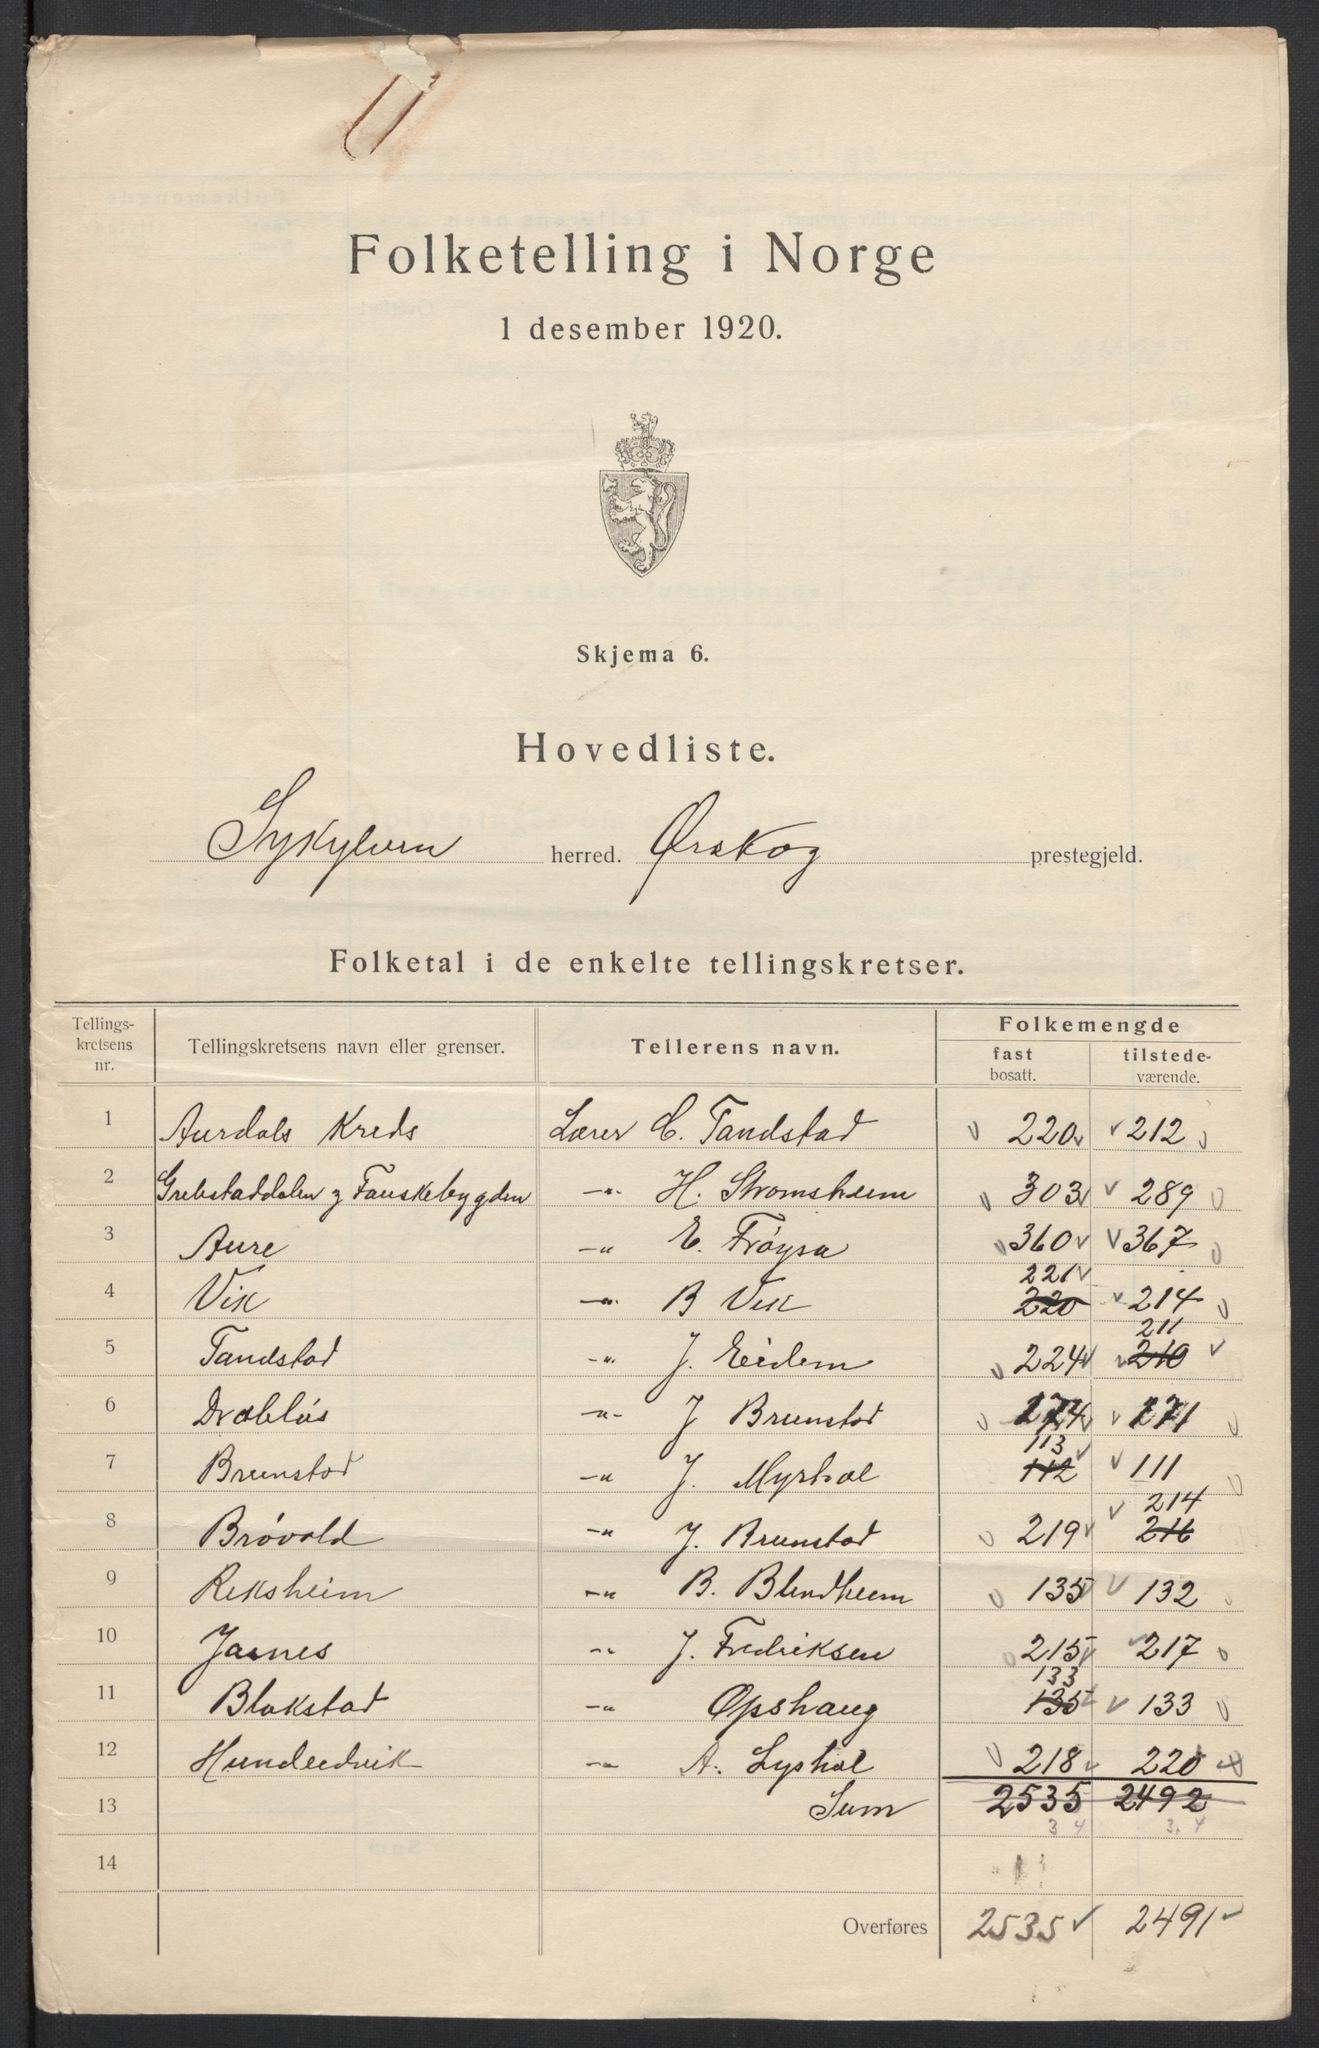 Folketelling i Norge
1 desember 1920.
Skjema 6.
Hovedliste.
Sykylven herred. Ørskog prestegjeld.
Folketal i de enkelte tellingskretser.
Tellings-kretsens nr. Tellingskretsens navn eller grenser. Tellerens navn. Folkemengde fast bosatt. tilstede-værende.
1 Aurdals Kreds Lærer C. Tandstad 220 212
2 Grebstaddalen og Fauskebygden -"- H. Strømsheim 303 289
3 Aure -"- E. Frøysa 360 367
221
4 Vik -"- B Vik 220 214
211
5 Tandstad -"- J. Eidem 224 210
6 Drabløs -"- J Brunstad 274 271
113
7 Brunstad -"- J. Myrhol 112 111
214
8 Brövold -"- J. Brunstad 219 216
9 Riksheim -"- B. Blindheim 135 132
10 Jarnes -"- J. Fredriksen 215 217
133
11 Blakstad -"- Opshaug 135 133
12 Hundeidvik -"- A. Lyshol 218 220
13 Sum 2535 2492
3 4 3, 4
14
Overføres 2535 2491